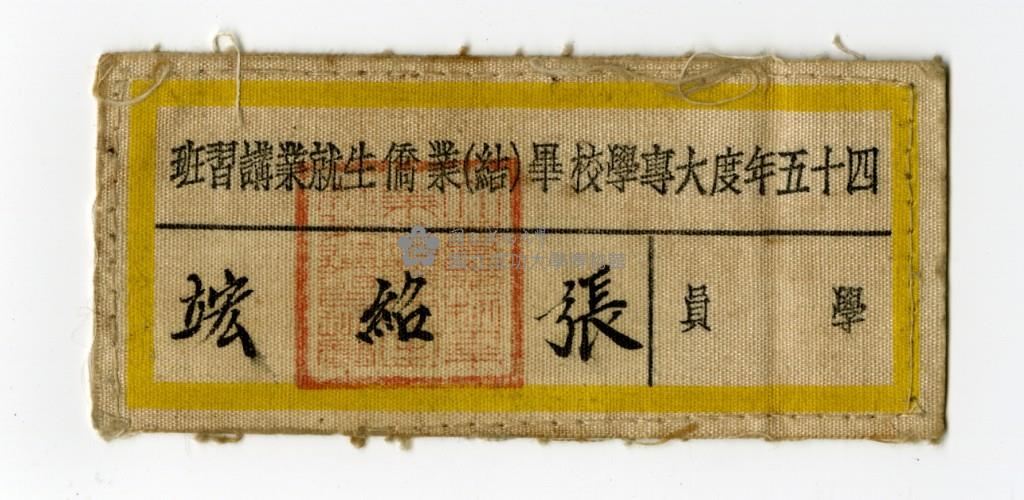 四十五年度大專學校畢(結)業僑生就業講習班
學員
張紹竤